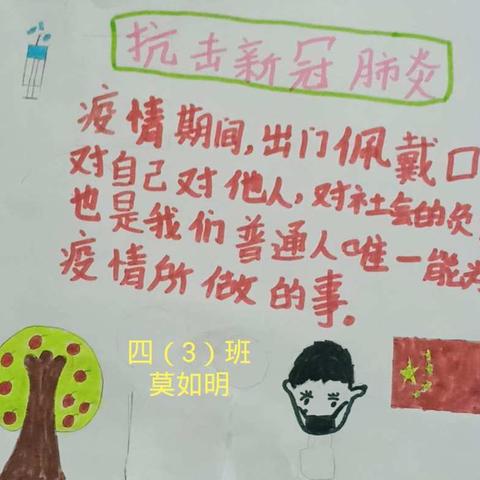 抗击新冠肺炎
疫情期间,出门佩戴口
对自己对他人,对社会的负
也是我们普通人唯一能为
疫情所做的事。
四（3）班
莫如明